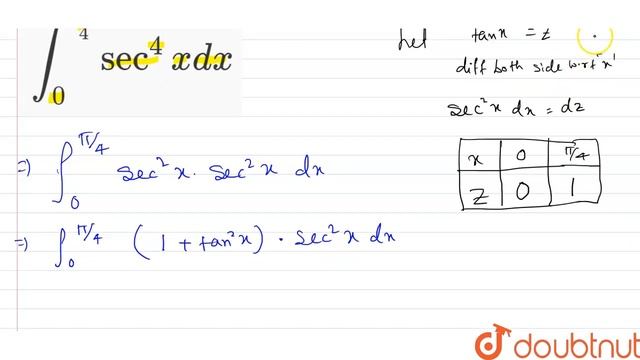 ∫₀^π/4 sec⁴ x dx
Let tan x = z
diff both side w.r.t 'x'
sec²x dx = dz
x 0 π/4
z 0 1
=) ∫₀^π/4 sec²x · sec²x dx
=) ∫₀^π/4 (1 + tan²x) · sec²x dx
doubtnut